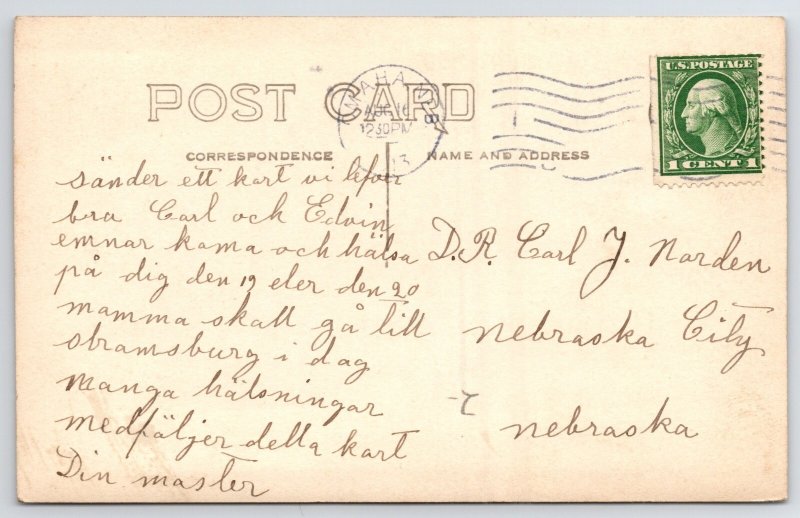 POST CARD
OMAHA, NEB.
AUG 16
12 30 PM
13
U.S. POSTAGE
1 CENT 1
CORRESPONDENCE
NAME AND ADDRESS
sänder ett kort vi lefver
bra Carl och Edvin
emnar kama och hälsa
på dig den 19 eler den 20
mamma skall gå till
stramsburg i dag
manga hälsningar
medfäljer detta kort
Din master
D.R. Carl J. Norden
Nebraska City
Nebraska